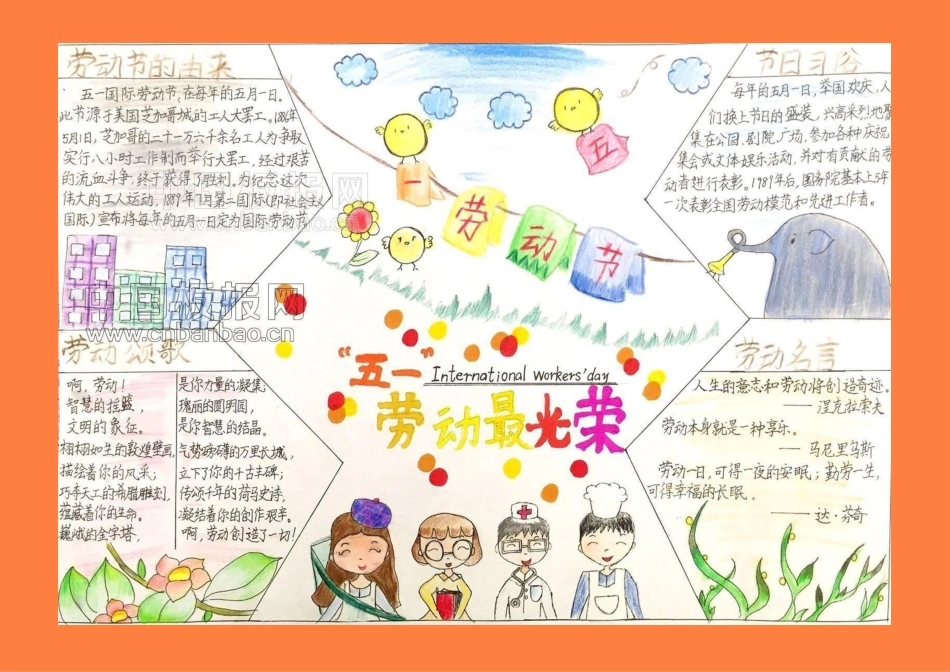 劳动节的由来
五一国际劳动节,在每年的五月一日。
此节源于美国芝加哥城的工人大罢工。1886年
5月1日,芝加哥的二十一万六千余名工人为争取
实行八小时工作制而举行大罢工,经过艰苦
的流血斗争,终于获得了胜利。为纪念这次
伟大的工人运动,1889年7月第二国际(即社会主义
国际)宣布将每年的五月一日定为国际劳动节
五
一
劳
动
节
节日习俗
每年的五月一日,举国欢庆,人
们换上节日的盛装,兴高采烈地聚
集在公园、剧院、广场,参加各种庆祝
集会或文体娱乐活动,并对有贡献的劳
动者进行表彰。1989年后,国务院基本上5年
一次表彰全国劳动模范和先进工作者。
中国板报网
www.cnbanbao.cn
劳动颂歌
啊,劳动!
智慧的摇篮,
文明的象征。
栩栩如生的敦煌壁画,
描绘着你的风采;
巧夺天工的希腊雕刻,
蕴藏着你的生命。
巍峨的金字塔,
是你力量的凝集;
瑰丽的圆明园,
是你智慧的结晶。
气势磅礴的万里长城,
立下了你的千古丰碑;
传颂千年的荷马史诗,
凝结着你的创作艰辛。
啊,劳动创造了一切!
"五一"International workers'day
劳动最光荣
劳动名言
人生的意志和劳动将创造奇迹。
——涅克拉索夫
劳动本身就是一种享乐。
——马尼里乌斯
劳动一日,可得一夜的安眠;勤劳一生,
可得幸福的长眠。
——达·芬奇